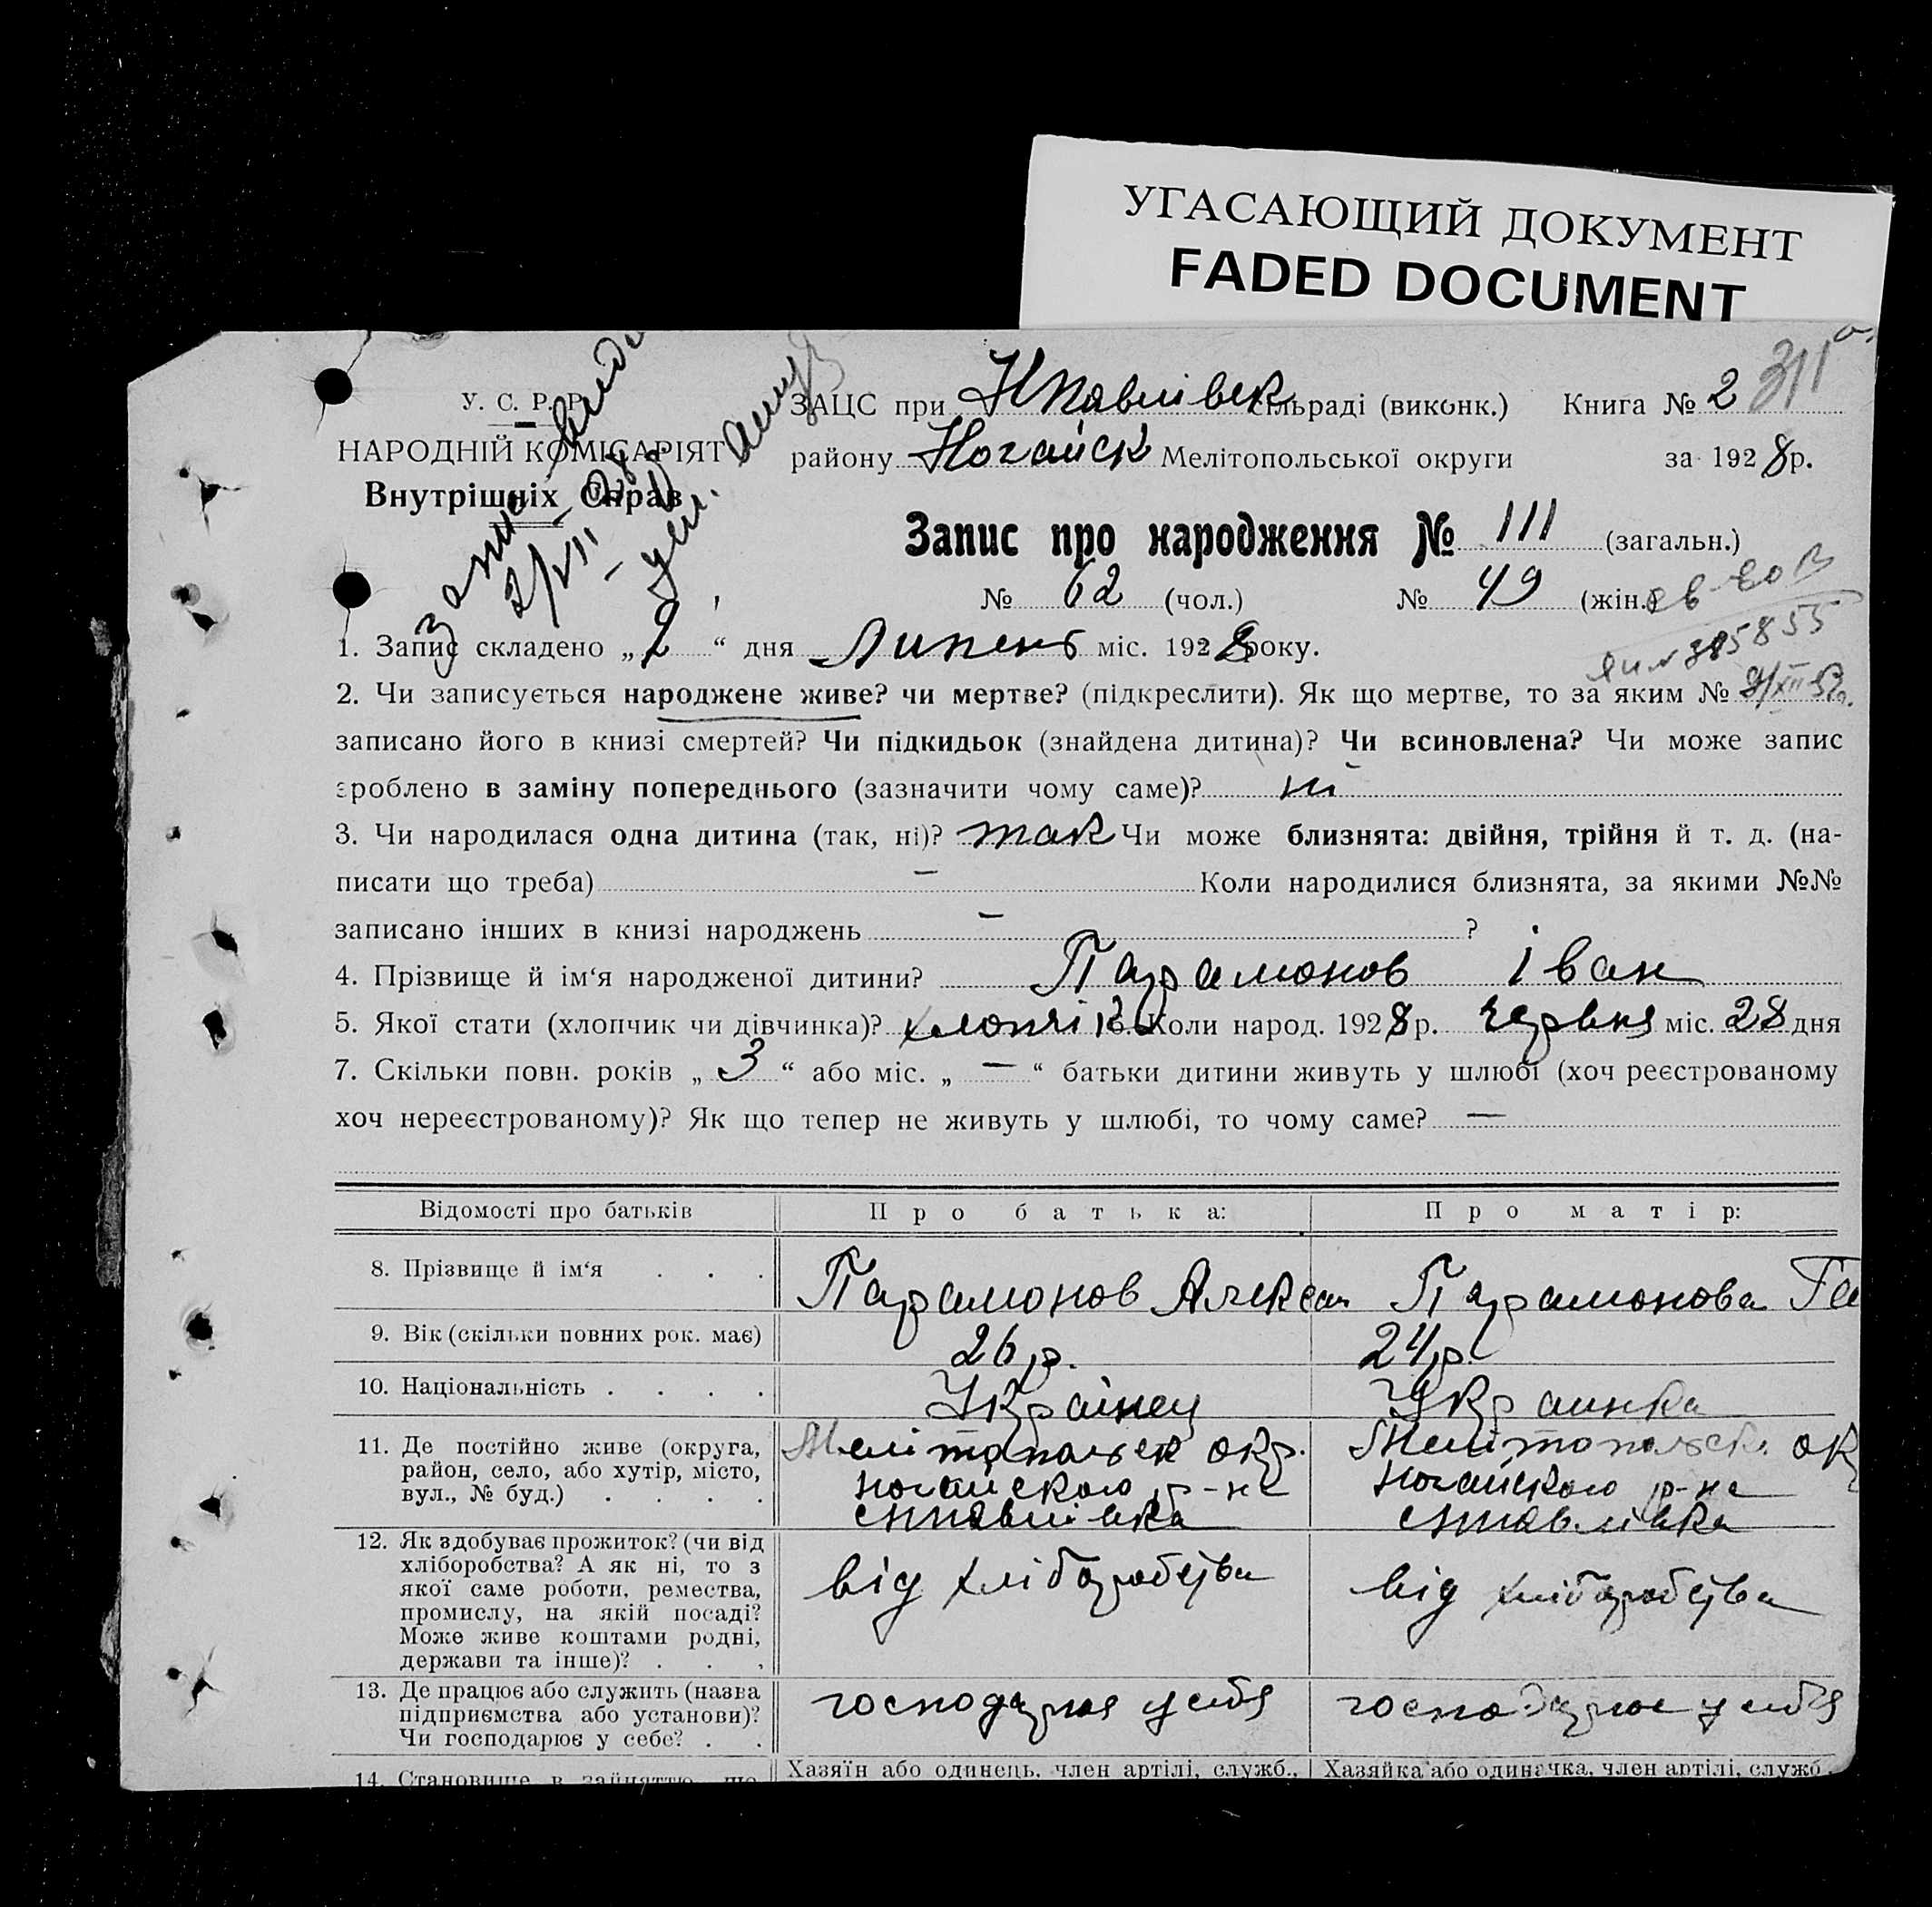 УГАСАЮЩИЙ ДОКУМЕНТ
FADED DOCUMENT
311
У. С. Р. Р.
НАРОДНІЙ КОМІСАРІЯТ
Внутрішніх Справ
ЗАЦС при Нпавлівск сільраді (виконк.) Книга № 2
району Ногайск Мелітопольської округи за 1928 р.
Запис про народження № 111 (загальн.)
№ 62 (чол.) № 49 (жін.)
385855
1. Запис складено „2“ дня Липень міс. 1928 року.
2. Чи записується народжене живе? чи мертве? (підкреслити). Як що мертве, то за яким №
записано його в книзі смертей? Чи підкидьок (знайдена дитина)? Чи всиновлена? Чи може запис
зроблено в заміну попереднього (зазначити чому саме)? ні
3. Чи народилася одна дитина (так, ні)? так Чи може близнята: двійня, трійня й т. д. (на-
писати що треба) — Коли народилися близнята, за якими №№
записано інших в книзі народжень — ?
4. Прізвище й ім‘я народженої дитини? Парамонов Іван
5. Якої стати (хлопчик чи дівчинка)? хлопчік 6. Коли народ. 1928 р. червня міс. 28 дня
7. Скільки повн. років „3“ або міс. „—“ батьки дитини живуть у шлюбі (хоч реєстрованому
хоч нереєстрованому)? Як що тепер не живуть у шлюбі, то чому саме? —
Відомості про батьків Про батька: Про матір:
8. Прізвище й ім‘я . . . Парамонов Алексан Парамонова Га
9. Вік (скільки повних рок. має) 26 р. 24 р.
10. Національність . . . . Українец Украинка
11. Де постійно живе (округа,
район, село, або хутір, місто,
вул., № буд.) . . . .
Мелітопольск окр.
ногайского р-на
с нпавлівка
Мелітопольск. ок
ногайского р-на
с нпавлівка
12. Як здобуває прожиток? (чи від
хліборобства? А як ні, то з
якої саме роботи, ремества,
промислу, на якій посаді?
Може живе коштами родні,
держави та інше)? . . .
від хліборобства
від хліборобства
13. Де працює або служить (назва
підприємства або установи)?
Чи господарює у себе? . .
господарює у себя
господарює у себя
14. Становище в зайняттю, що
Хазяїн або одинець, член артілі, служб.,
Хазяйка або одиначка, член артілі, служб.,